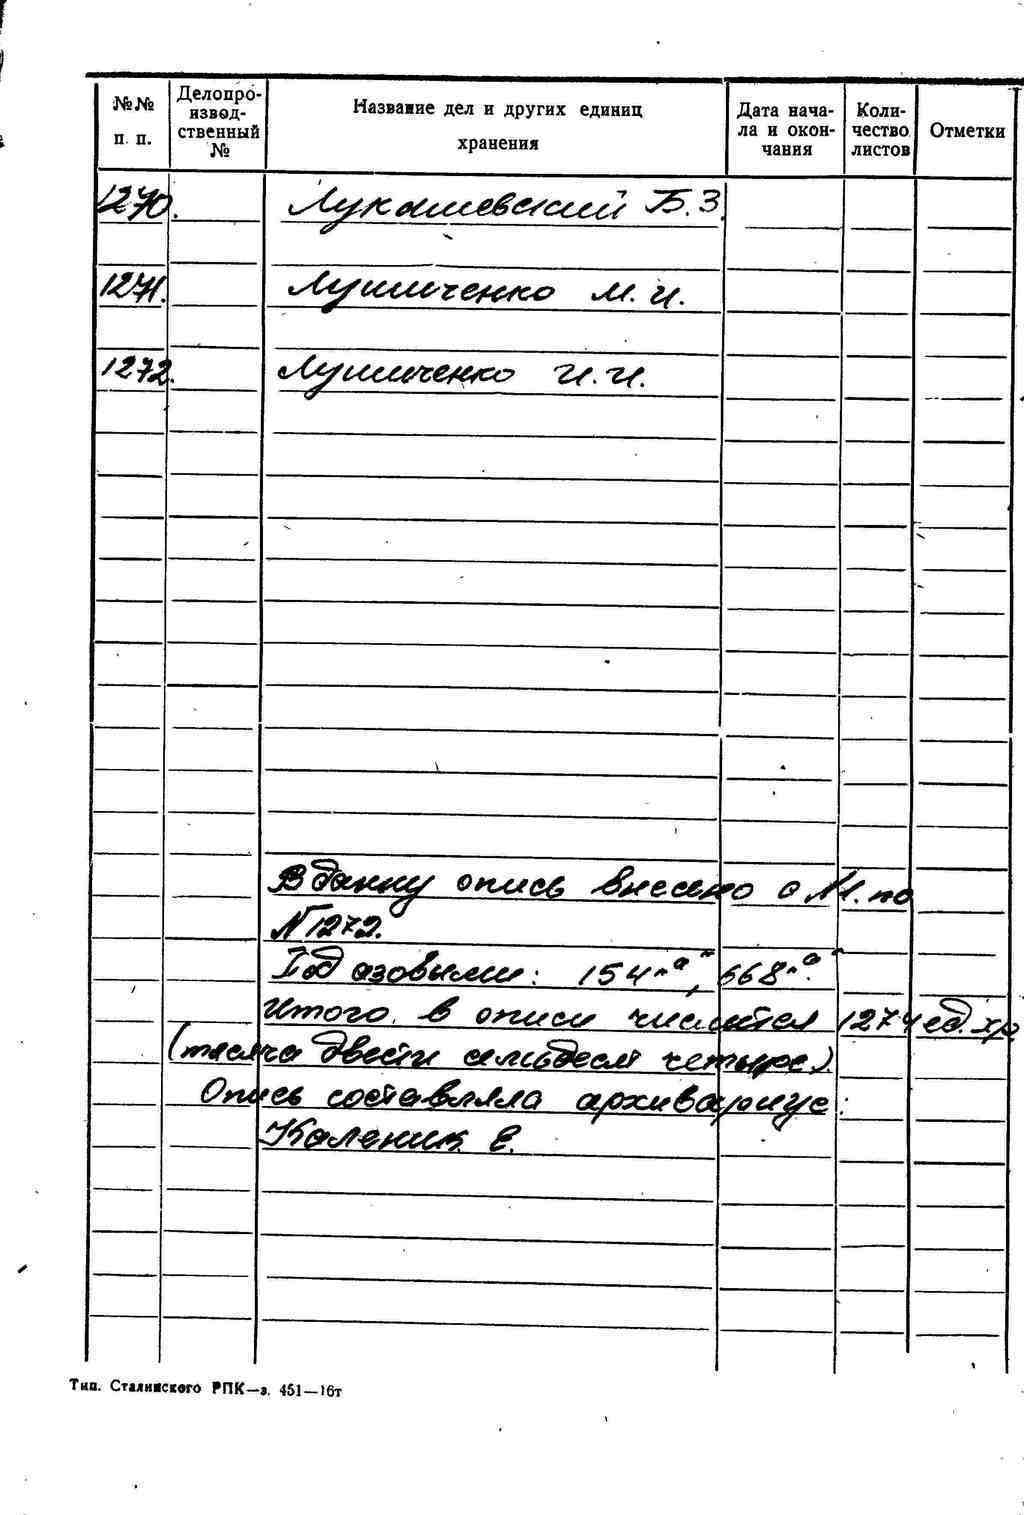 №№ п. п. Делопроизводственный № Название дел и других единиц хранения Дата начала и окончания Количество листов Отметки
1270. Лукашевский Б.З.
1271. Лушниченко М.И.
1272. Лушниченко И.И.
В данну опись внесено с №1. по
№1272.
Под азовыми: 154 "а", 668 "а".
Итого в описи числится 1274 ед. хр
(тысяча двести семьдесят четыре).
Опись составляла архивариус:
Каленик Е.
Тип. Сталинского РПК—з. 451—16т